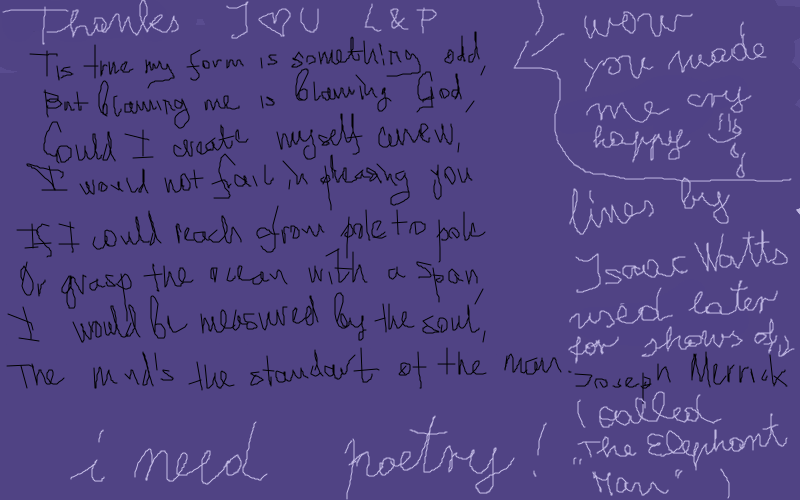 Thanks I ♡ U L & P
Tis true my form is something odd,
But blaming me is blaming God,
Could I create myself anew,
I would not fail in pleasing you
If I could reach from pole to pole
Or grasp the ocean with a span,
I would be measured by the soul,
The mind's the standart of the man.
i need poetry!
) wow
you made
me cry
happy
lines by
Isaac Watts
used later
for shows of
Joseph Merrick
( called
"The Elephant
Man" )